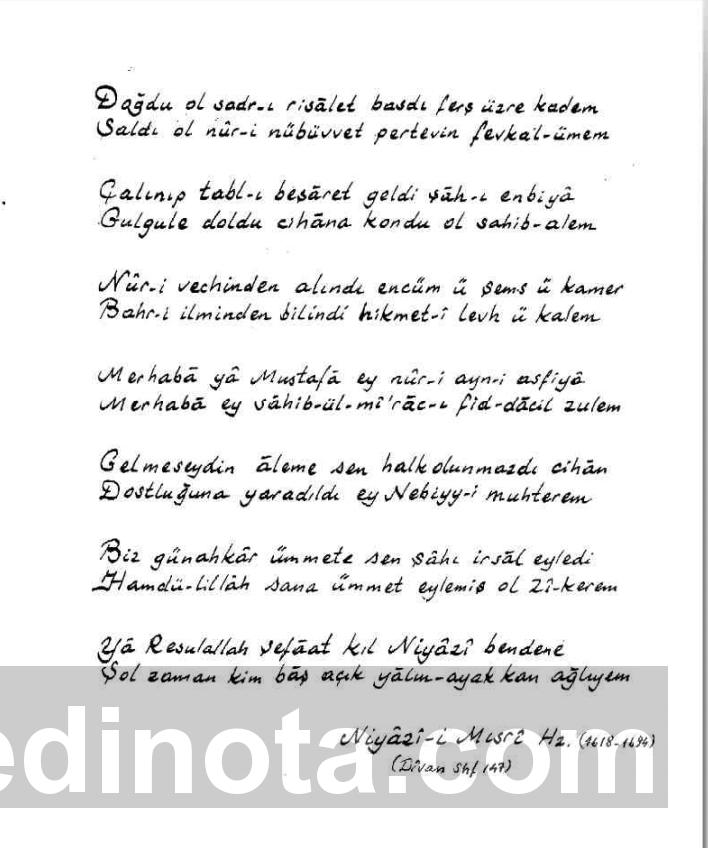 Doğdu ol sadr-ı risâlet basdı ferş üzre kadem
Saldı ol nûr-i nübüvvet pertevin fevkal-ümem
Çalınıp tabl-ı beşâret geldi şâh-ı enbiyâ
Gulgule doldu cihâna kondu ol sahib-alem
Nûr-i vechinden alındı encüm ü şems ü kamer
Bahr-i ilminden bilindi hikmet-î levh ü kalem
Merhabâ yâ Mustafâ ey nûr-i ayn-i asfiyâ
Merhabâ ey sâhib-ül-mî'râc-ı fid-dâcil zulem
Gelmeseydin âleme sen halkolunmazdı cihân
Dostluğuna yaradıldı ey Nebiyy-i muhterem
Biz günahkâr ümmete sen şâhı irsâl eyledi
Hamdü-lillâh sana ümmet eylemiş ol Zî-kerem
Yâ Resulallah şefâat kıl Niyâzî bendene
Şol zaman kim bâş açık yâlın-ayak kan ağlıyem
Niyâzî-i Mısrî Hz. (1618-1694)
(Dîvan Shf 147)
edinota.com